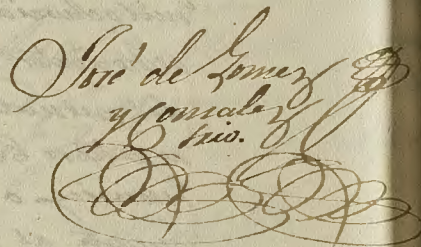 José de Gomez
y Gonzalez
Srio.